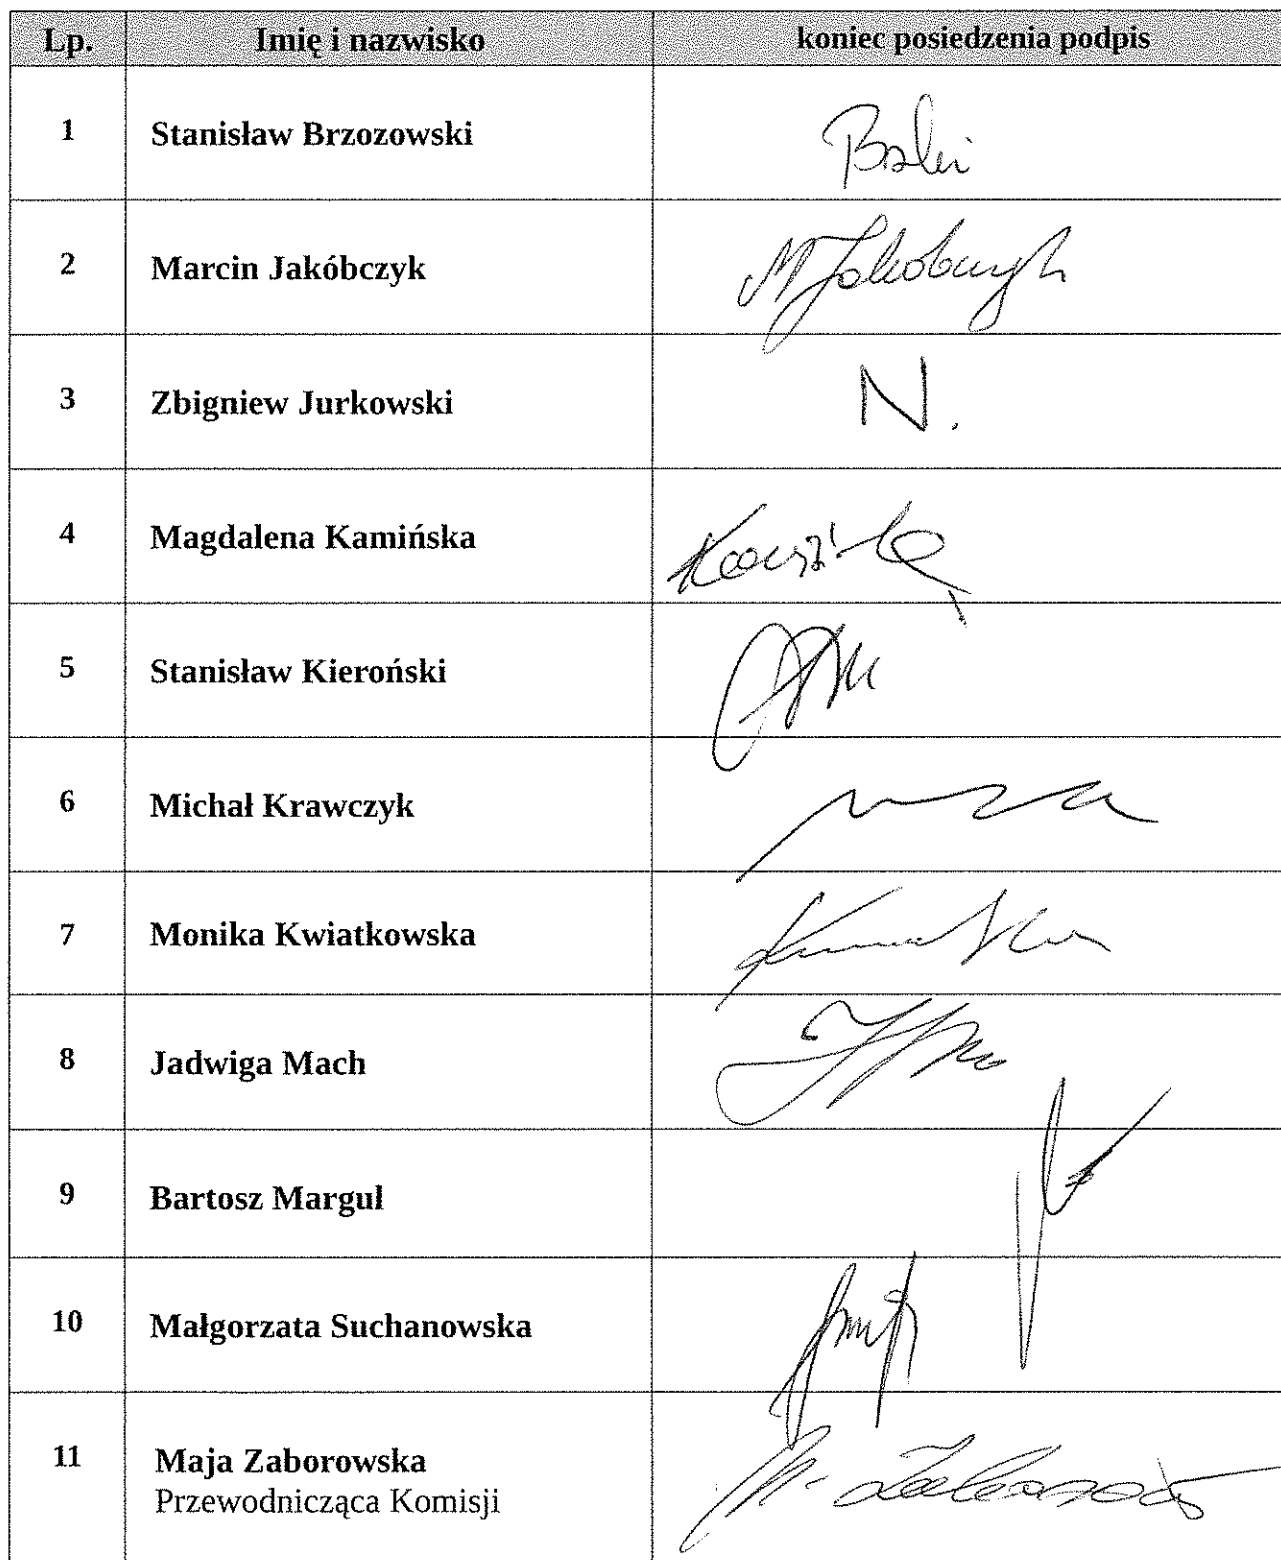 Lp. Imię i nazwisko koniec posiedzenia podpis
1 Stanisław Brzozowski
2 Marcin Jakóbczyk MJakóbczyk
3 Zbigniew Jurkowski N.
4 Magdalena Kamińska
5 Stanisław Kieroński
6 Michał Krawczyk
7 Monika Kwiatkowska
8 Jadwiga Mach
9 Bartosz Margul
10 Małgorzata Suchanowska
11 Maja Zaborowska
Przewodnicząca Komisji